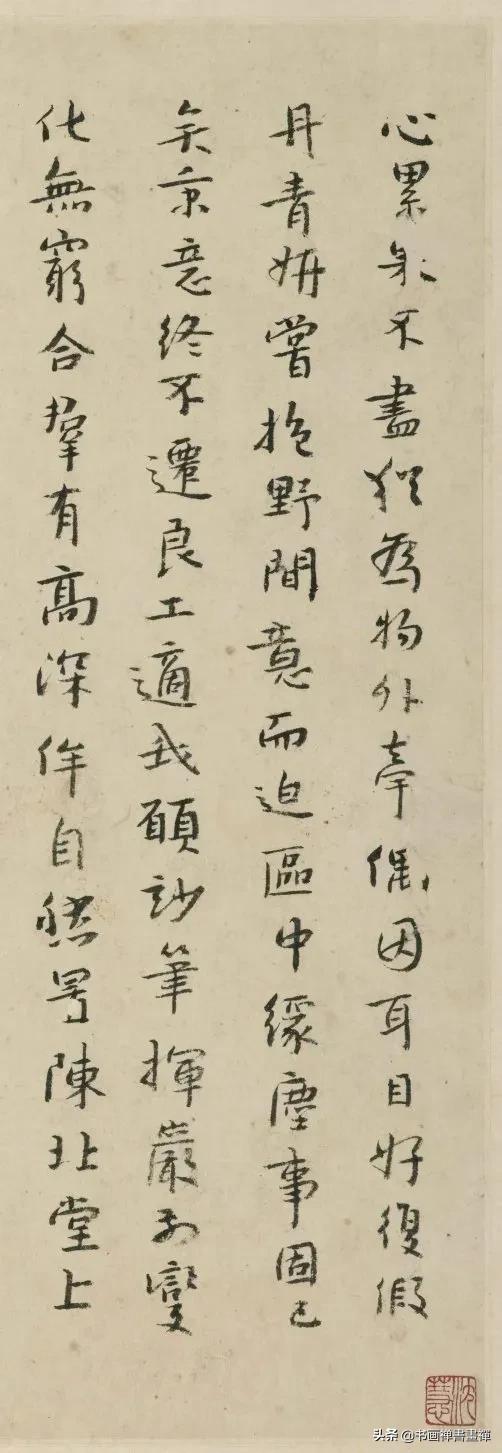 心累果不盡猶為物外牽偶因耳目好復假
丹青妍嘗抱野間意而迫區中緣塵事固已
矣秉意終不遷良工適我願妙筆揮巖變
化無窮合羣有高深侔自然置陳北堂上
头条 @书画禅書畫禪